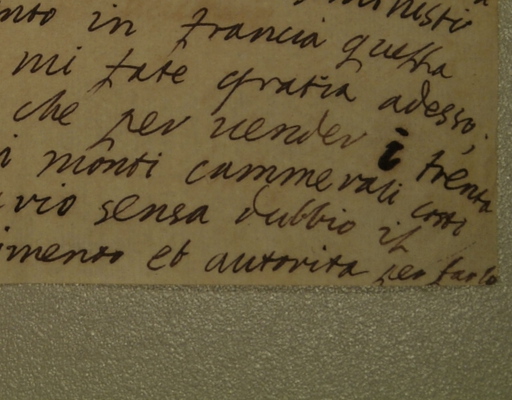 nto in francia questa
mi fate gratia adesso,
che per vender i trenta
i monti cammerali costi
rio sensa dubbio il
imento et autorita per farlo